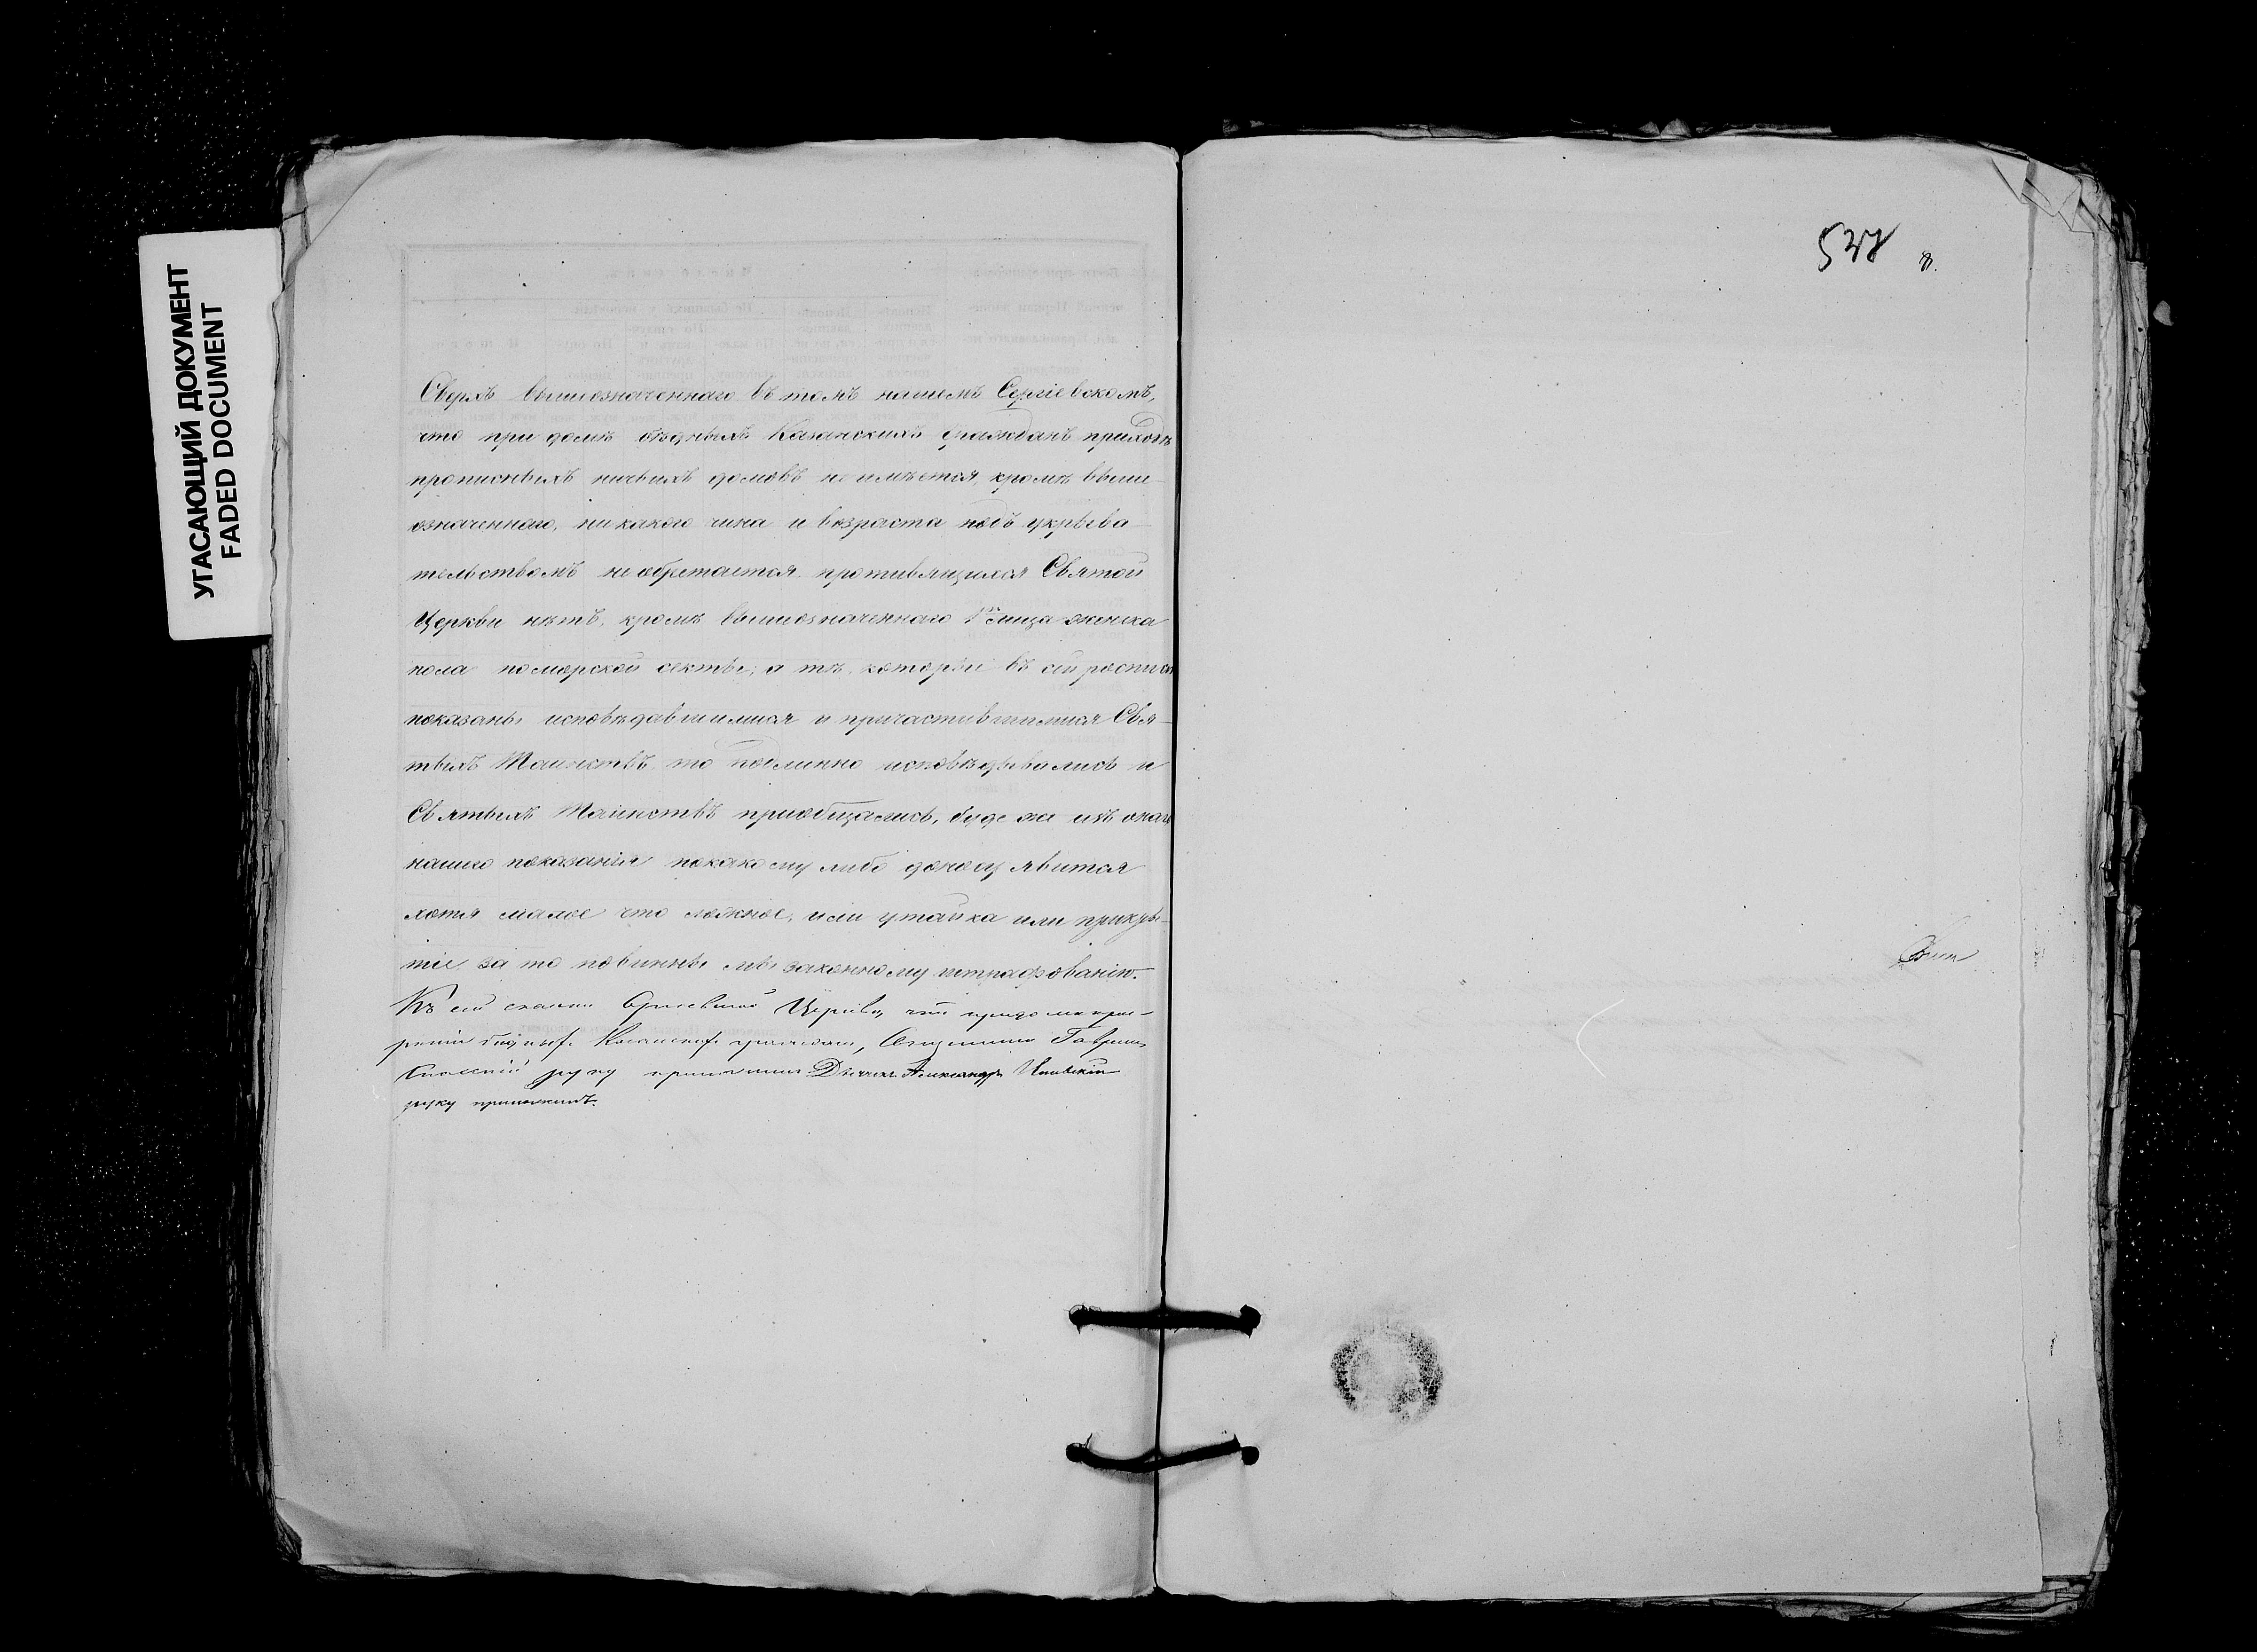 УГАСАЮЩИЙ ДОКУМЕНТ
FADED DOCUMENT
Сверхъ вышеозначеннаго въ томъ нашемъ Сергіевскомъ,
что при домѣ бѣдныхъ Казанскихъ гражданъ приходѣ
прописныхъ ничьихъ домовъ не имѣется, кромѣ выше-
означеннаго, никакого чина и возраста подъ укрыва-
тельствомъ не обретается противящихся Святой
Церкви нѣтъ, кромѣ вышеозначеннаго 1го лица женска
пола поморской секты; а тѣ, которые въ сей росписи
показаны исповѣдавшимися и причастившимися Свя-
тыхъ Таинствъ то подлинно исповѣдывались и
Святыхъ Таинствъ приобщались, буде же изъ онаго
нашего показанія по какому либо доносу явится
хотя малое что ложное, или утайка или прикры-
тіе, за то повинны мы законному штрафованію.
Къ сей Церкви, что при домѣ
Казанскихъ гражданъ, Священникъ
руку приложилъ Дьячекъ Александръ
руку приложилъ.